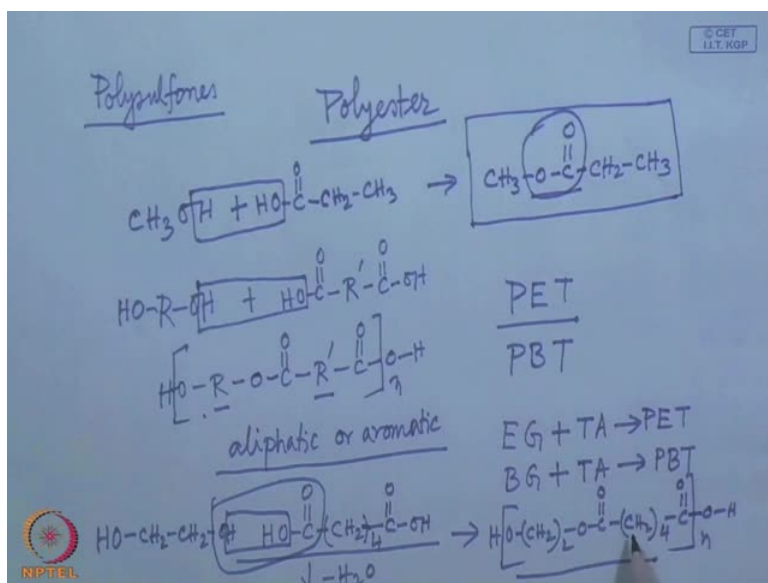 © CET
I.I.T. KGP
Polysulfones
Polyester
CH3OH + HO-C(=O)-CH2-CH3 → CH3-O-C(=O)-CH2-CH3
HO-R-OH + HO-C(=O)-R'-C(=O)-OH
H[O-R-O-C(=O)-R'-C(=O)]n-O-H
PET
PBT
aliphatic or aromatic
EG + TA → PET
BG + TA → PBT
HO-CH2-CH2-OH HO-C(=O)-(CH2)4-C(=O)-OH → H[O-(CH2)2-O-C(=O)-(CH2)4-C(=O)]n-O-H
↓ -H2O
NPTEL